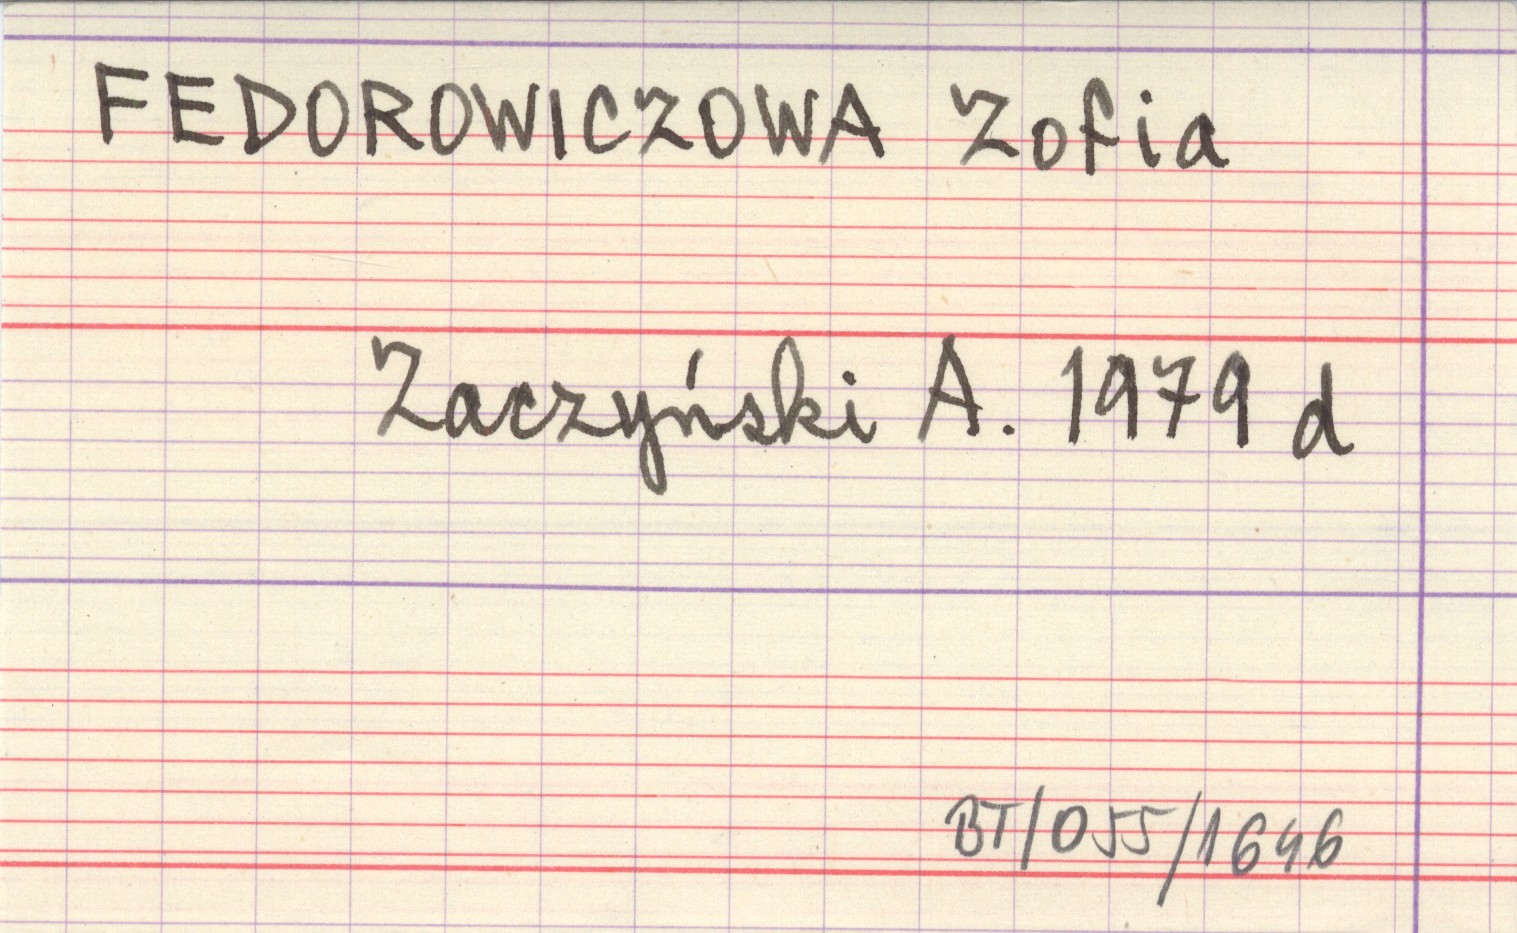 FEDOROWICZOWA Zofia
Zaczyński A. 1979 d
BT/055/1646